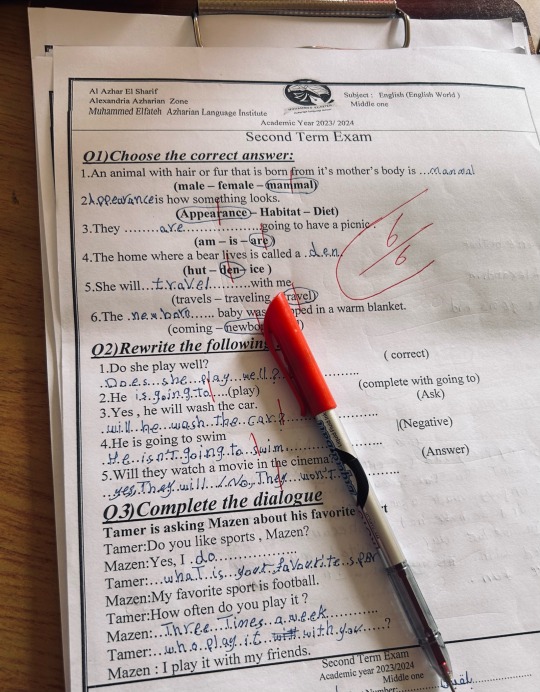 Al Azhar El Sharif
Alexandria Azharian Zone
Muhammed Elfateh Azharian Language Institute
Subject : English (English World )
Middle one
Academic Year 2023/ 2024
Second Term Exam
Q1)Choose the correct answer:
1.An animal with hair or fur that is born from it's mother's body is ...mammal
(male – female – mammal)
2.Appearance is how something looks.
(Appearance – Habitat – Diet)
3.They ........are..................going to have a picnic
(am – is – are)
4.The home where a bear lives is called a .den.
(hut – den– ice )
6
6
5.She will...travel......with me
(travels – traveling – travel)
6.The .newborn..... baby was wrapped in a warm blanket.
(coming – newborn
Q2)Rewrite the following
1.Do she play well?
( correct)
.Does...she...play...well.?
2.He is.going.to....(play)
(complete with going to)
3.Yes , he will wash the car.
(Ask)
.will..he..wash..the..car.?
4.He is going to swim
(Negative)
.He..isn't.going.to..swim.
5.Will they watch a movie in the cinema?
(Answer)
..yes,They.will../.No,.They..won't.
Q3)Complete the dialogue
Tamer is asking Mazen about his favorite
Tamer:Do you like sports , Mazen?
Mazen:Yes, I .do................
Tamer:...what.is...your.favourite.s
Mazen:My favorite sport is football.
Tamer:How often do you play it ?
Mazen:..Three..Times..a.week..........
Tamer:..who.play.it with.you.....?
Mazen : I play it with my friends.
Second Term Exam
Academic year 2023/2024
Middle one
Number: